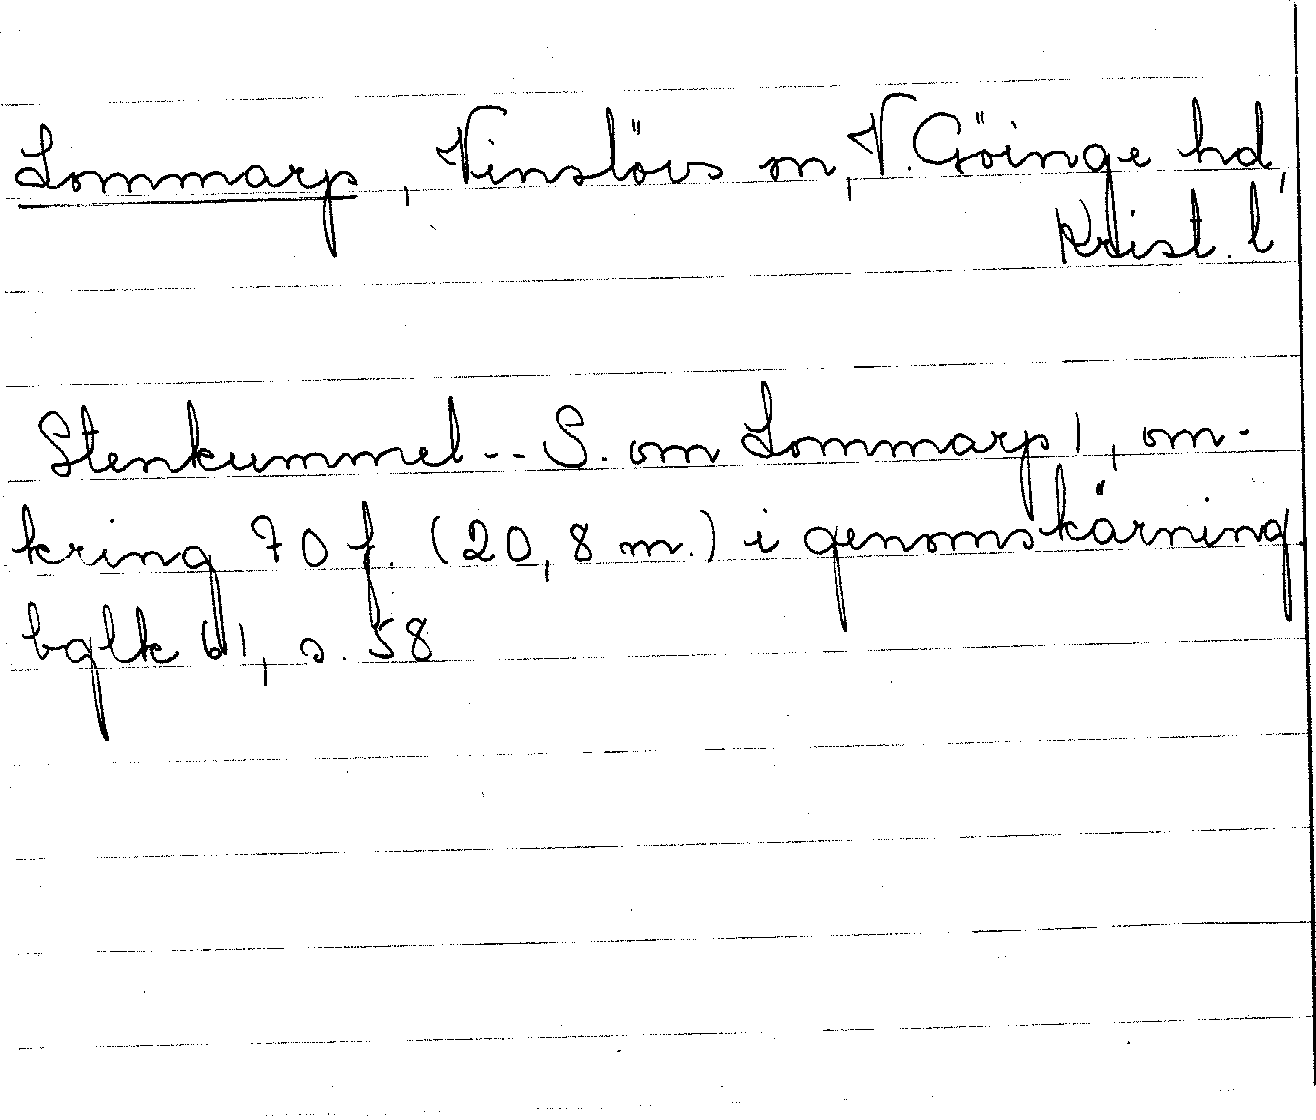 Lommarp, Vinslövs sn, V. Göinge hd,
Krist. l
Stenkummel -- S. om Lommarp 1, om-
kring 70 f. (20,8 m.) i genomskärning.
bglk 61, s. 58